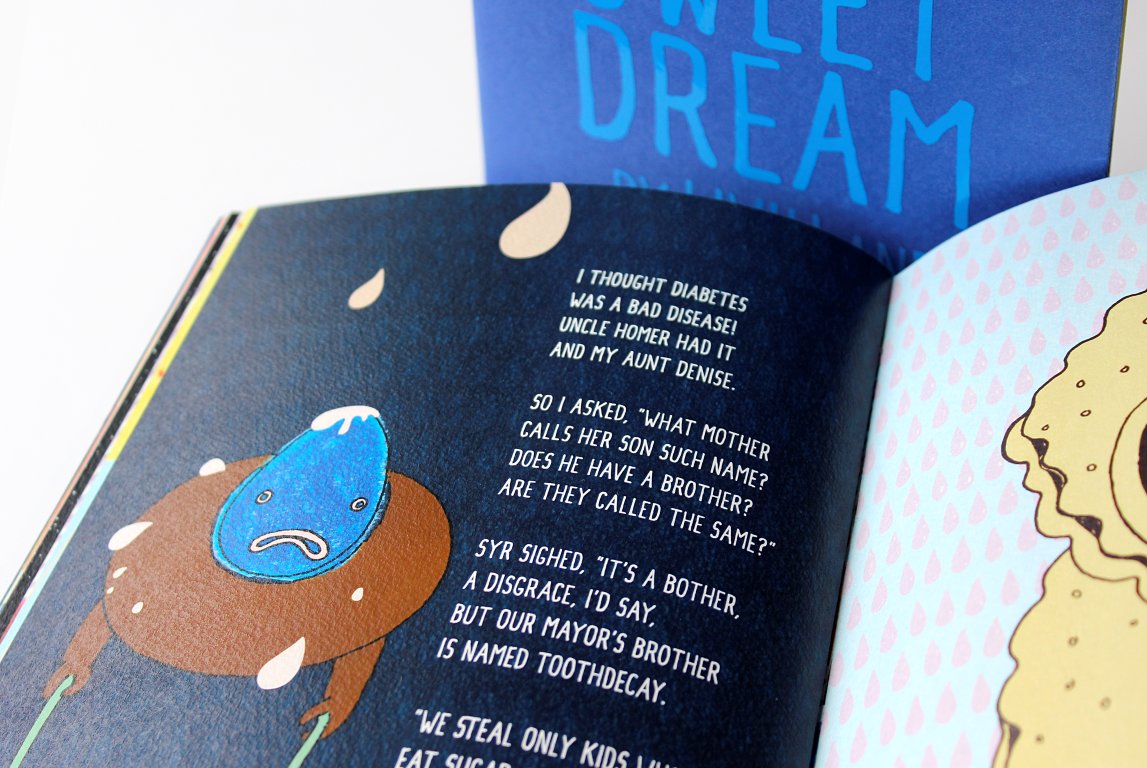 DREAM
I THOUGHT DIABETES
WAS A BAD DISEASE!
UNCLE HOMER HAD IT
AND MY AUNT DENISE.
SO I ASKED, "WHAT MOTHER
CALLS HER SON SUCH NAME?
DOES HE HAVE A BROTHER?
ARE THEY CALLED THE SAME?"
SYR SIGHED, "IT'S A BOTHER,
A DISGRACE, I'D SAY,
BUT OUR MAYOR'S BROTHER
IS NAMED TOOTHDECAY.
"WE STEAL ONLY KIDS
EAT SUGAR